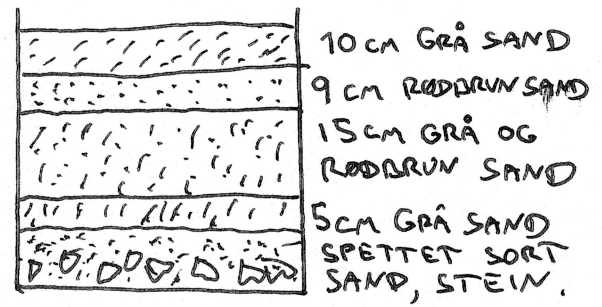 10 CM GRÅ SAND
9 CM RØDBRUN SAND
15 CM GRÅ OG
RØDBRUN SAND
5 CM GRÅ SAND
SPETTET SORT
SAND, STEIN.